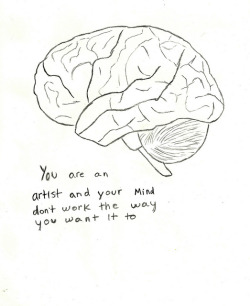 You are an
artist and your Mind
dont work the way
you want it to